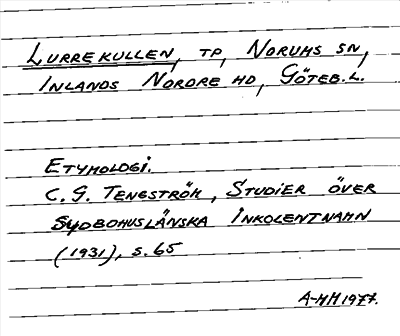 LURREKULLEN, TP, NORUMS SN,
INLANDS NORDRE HD, GÖTEB.L.
ETYMOLOGI.
C. G. TENGSTRÖM, STUDIER ÖVER
SYDBOHUSLÄNSKA INKOLENTNAMN
(1931), S. 65
A-MM 1977.